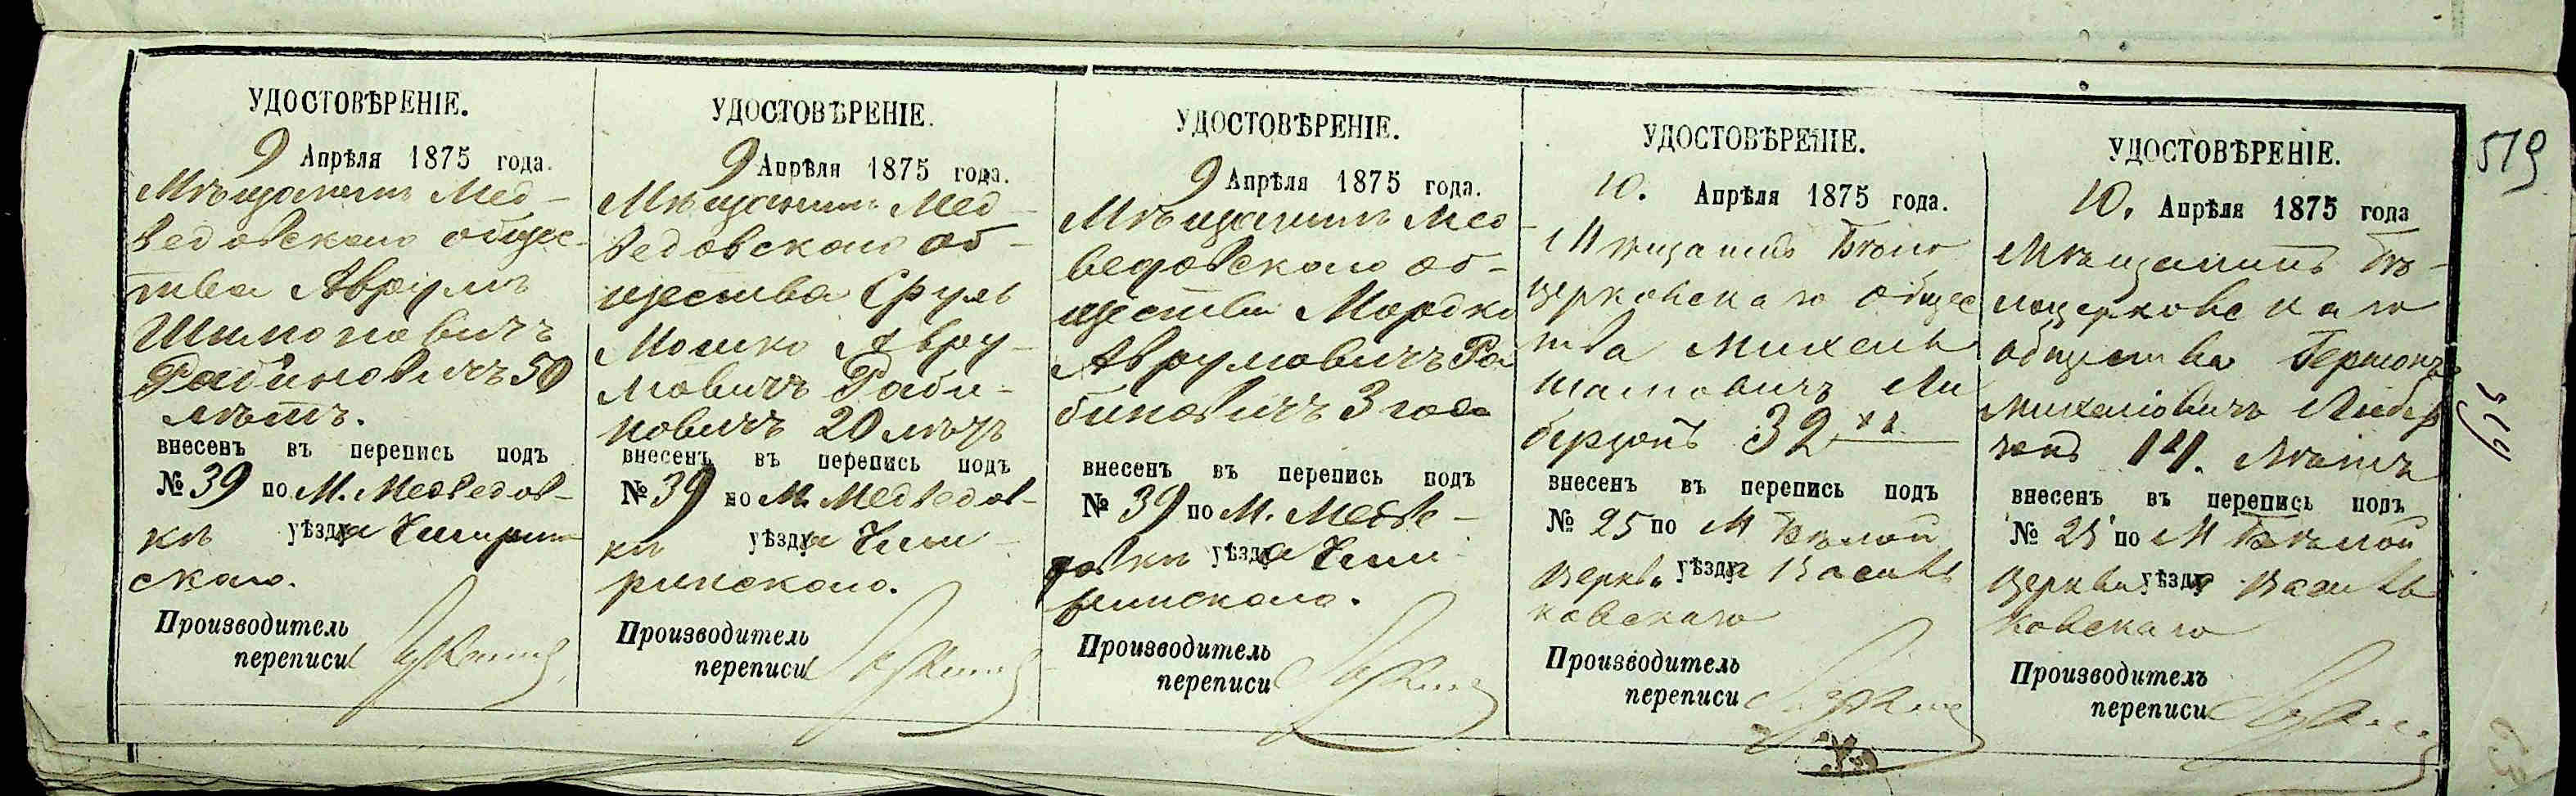 УДОСТОВѢРЕНІЕ.
9 Апрѣля 1875 года.
Мѣщанинъ Мед-
ведовскаго общес-
тва Аврумъ
Шимоновичъ
Рабиновичъ 50
лѣтъ.
внесенъ въ перепись подъ
№ 39 по М. Медведов-
кѣ уѣзда Чигирин
скаго.
Производитель
переписи
УДОСТОВѢРЕНІЕ.
9 Апрѣля 1875 года.
Мѣщанинъ Мед-
ведовскаго об-
щества Сруль
Мошко Авру-
мовичъ Раби-
новичъ 20 лѣтъ
внесенъ въ перепись подъ
№ 39 по М. Медведов-
кѣ уѣзда Чиги-
ринскаго.
Производитель
переписи
УДОСТОВѢРЕНІЕ.
9 Апрѣля 1875 года.
Мѣщанинъ Мед
ведовскаго об-
щества Мордко
Аврумовичъ Ра
биновичъ 3 года
внесенъ въ перепись подъ
№ 39 по М. Медве-
довкѣ уѣзда Чиги
ринскаго.
Производитель
переписи
УДОСТОВѢРЕНІЕ.
10. Апрѣля 1875 года.
Мѣщанинъ Бѣло
церковскаго общес
тва Михель
Ли
берзонъ 32
внесенъ въ перепись подъ
№ 25 по М Бѣлой
Церкви уѣзда Василь
ковскаго
Производитель
переписи
УДОСТОВѢРЕНІЕ.
10. Апрѣля 1875 года
Мѣщанинъ Бѣ-
лоцерковскаго
общества Гершонъ
Михелiовичъ Либер
зонъ 14. лѣтъ
внесенъ въ перепись подъ
№ 25 по М Бѣлой
Церкви уѣзда Василь
ковскаго
Производитель
переписи
519
519